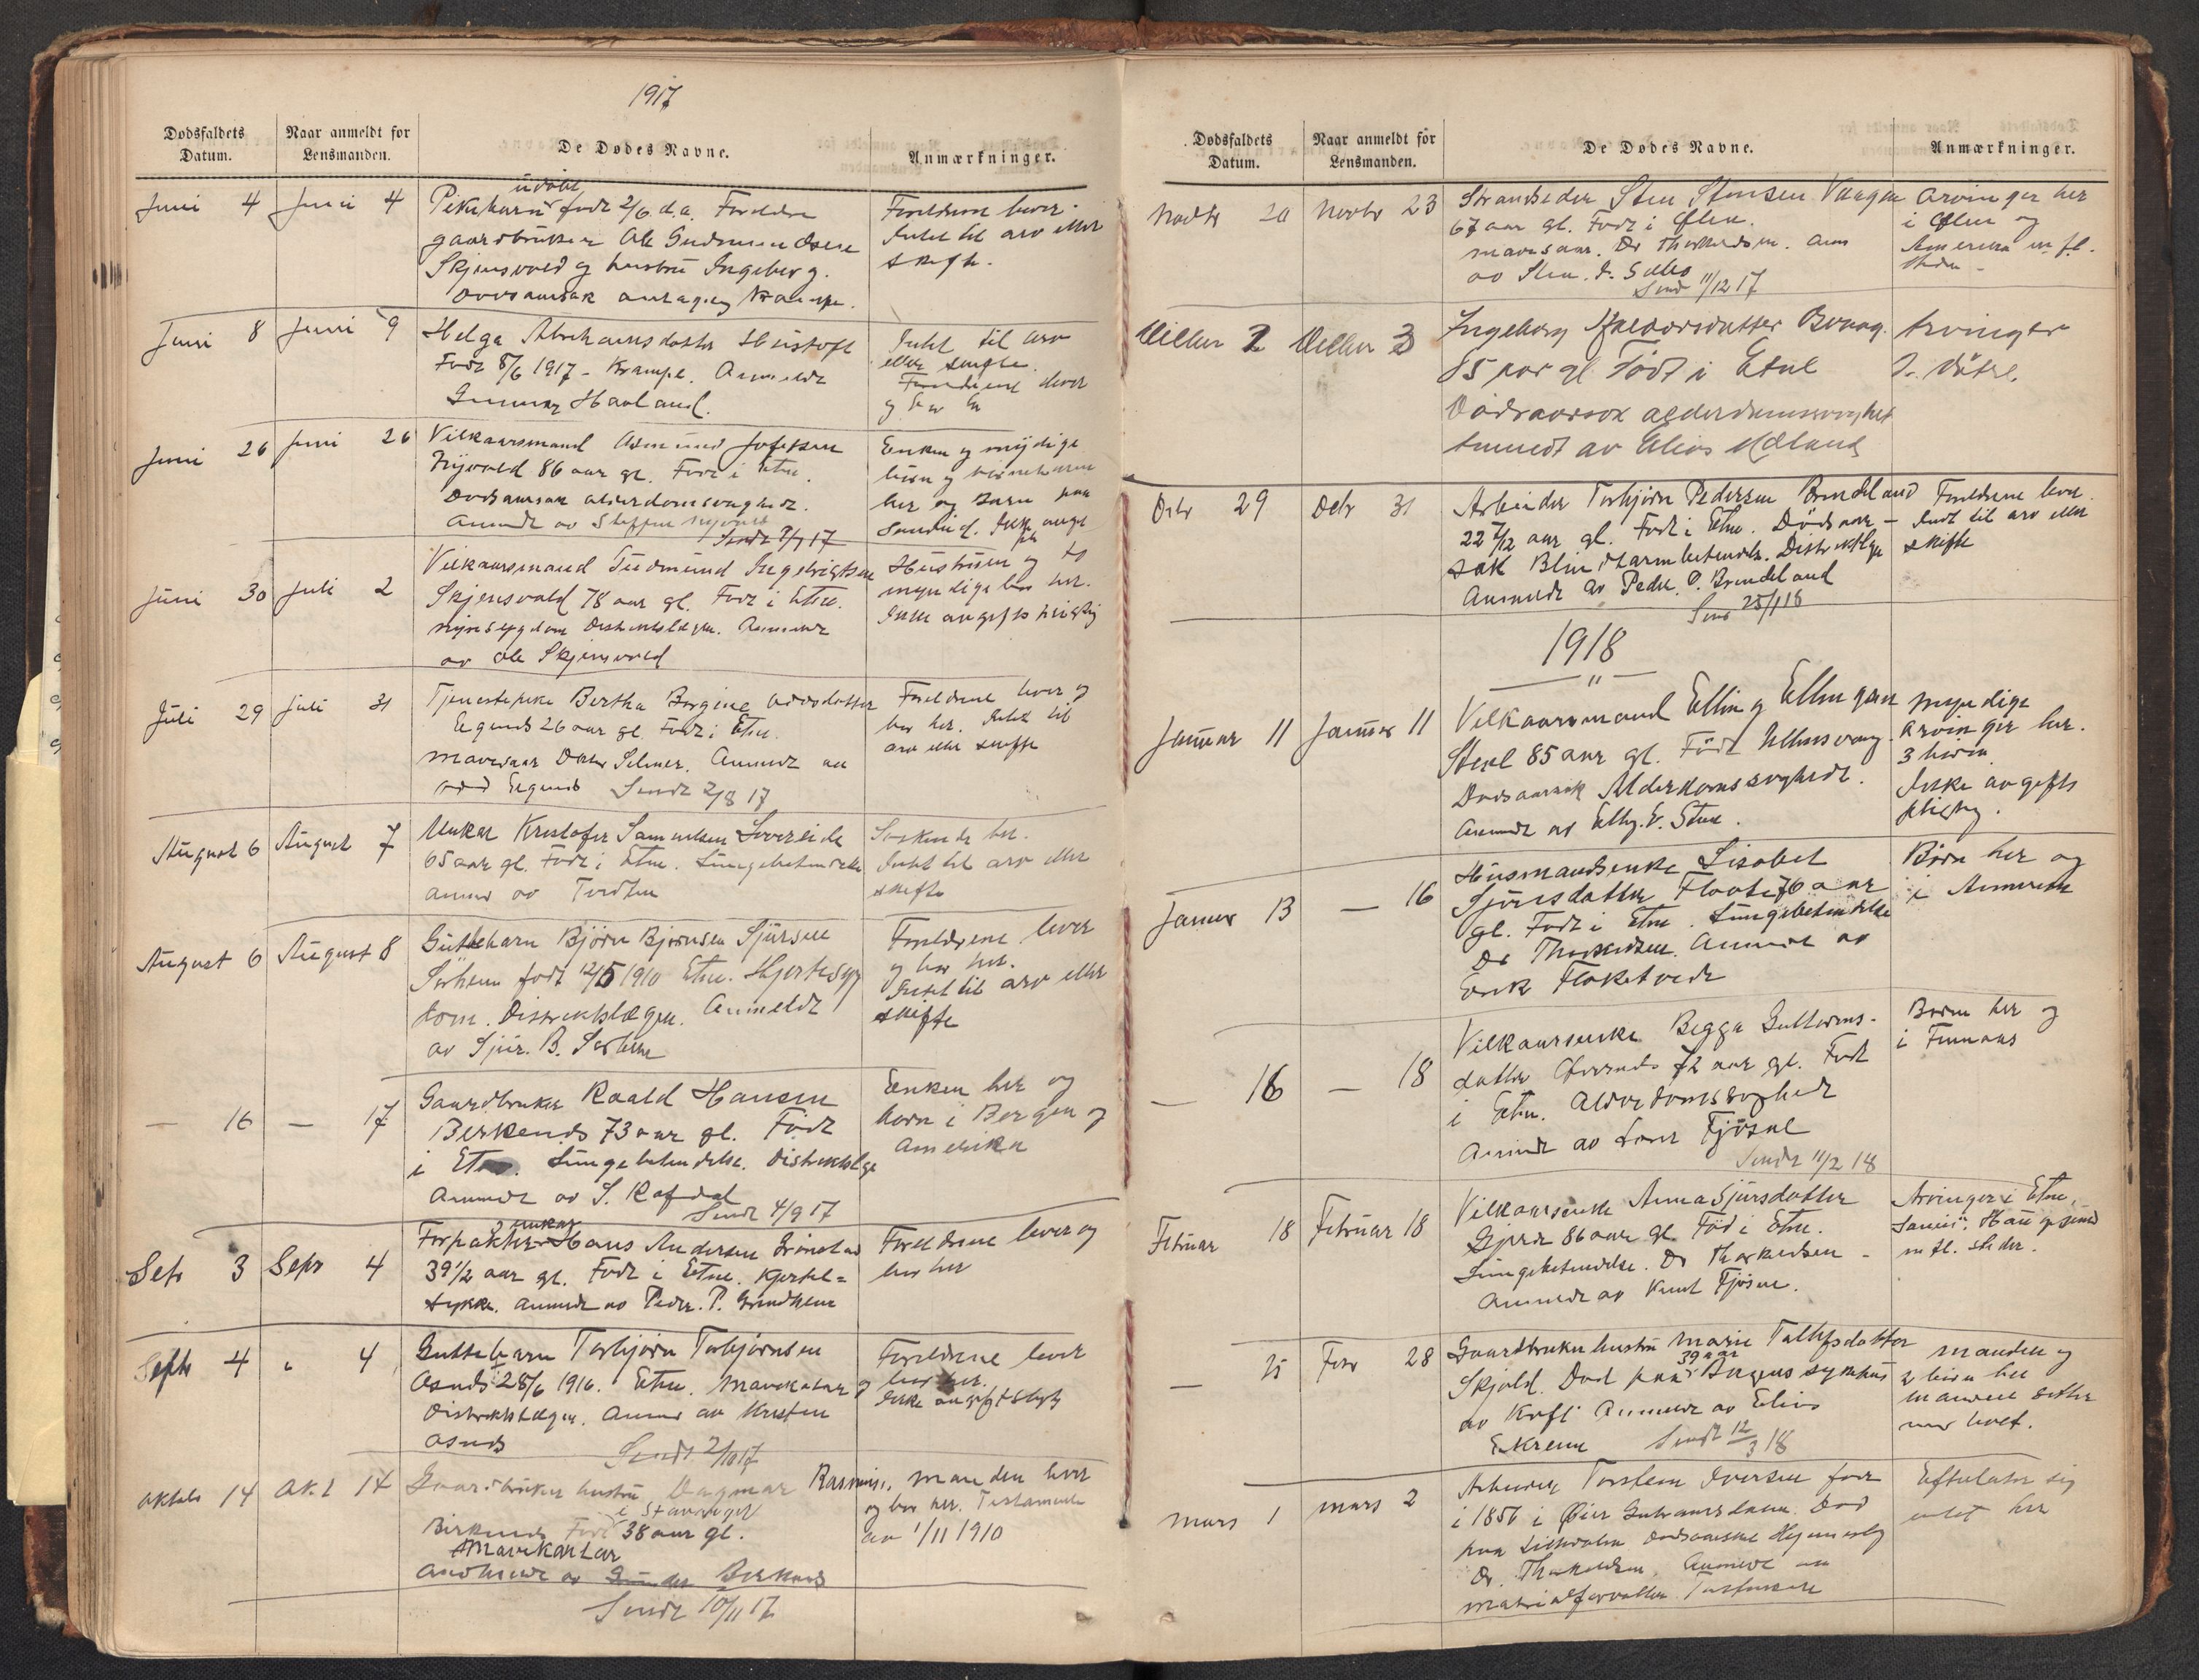 1917
Dødsfaldets Datum.
Naar anmeldt for Lensmanden.
De Dødes Navne.
Anmærkninger.
Juni 4 Juni 4
udøbt
Pikebarn født 2/6 d.a. Foreldre
gaardbruker Ole Gudmundsen
Skjensvold og hustru Ingeborg.
Dødsaarsak antagelig Krampe.
Foreldrene lever.
Intet til arv eller
skifte.
Juni 8 Juni 9
Helga Abrahamsdatter Høistoft
Født 8/6 1917 - Krampe. Anmeldt
Gunnar Havland.
Intet til arv
eller skifte.
Foreldrene lever
og bor
Juni 26 Juni 26
Vilkaarsmand Asmund Josefsen
86 aar gl. Født i Etne.
Dødsaarsak alderdomsvaghet.
Anmeldt av Steffen
Sendt 7/7 17
Enken og myndige
børn og børnebørn
her og
Juni 30 Juli 2
Vilkaarsmand Gudmund Ingebrigtsen
Skjensvold 78 aar gl. Født i Etne.
Nyresygdom Distriktslægen. Anmeldt
av Ole Skjensvold
Hustruen og to
myndige børn her.
Ikke avgiftspliktig
Juli 29 Juli 31
Tjenestepike Bertha Bergine Oddsdatter
Egeneds 26 aar gl Født i Etne.
mavesaar Doktor Selmer. Anmeldt av
Odd Sendt 2/8 17
Foreldrene lever og
bor her. Intet til
arv eller skifte
August 6 August 7
Unkar Kristofer Samuelsen Søvereide
65 aar gl. Født i Etne. Lungebetendelse
anmeldt av
Søskende her.
Intet til arv eller
skifte
August 6 August 8
Guttebarn Bjørn Bjørnsen Sjursen
Sørheim født 12/5 1910 Etne. Hjertesyg
dom. Distriktslægen. Anmeldt
av Sjur. B. Sørheim
Foreldrene lever
og bor her.
Intet til arv eller
skifte
— 16 — 17
Gaardbruker Roald Hansen
Berkends 73 aar gl. Født
i Etne. Lungebetendelse. Distriktslge
Anmeldt av S. Rafdal
Sendt 4/9 17
Enken her og
barn i Bergen og
Amerika
Sepr 3 Sepr 4
unkar
Forpakter Hans Andersen Grønstad
39 1/2 aar gl. Født i Etne. Hjertel=
Anmeldt av Peder. P. Grindheim
Foreldrene lever og
bor her
Septr 4 " 4
Guttebarn Torbjørn Torbjørnsen
Osnes 28/6 1916. Etne. Mavekatar
Distriktslægen. Anmeldt av Kristen
Osnes
Sendt 2/10 17
Foreldrene lever
bor her.
Ikke avgiftspligtig
Oktober 14 Okt 14
Gaardbruker hustru Dagmar Rasmus.
i Stavanger
Birkends Født 38 aar gl.
Mavekatar
Sendt 10/11 17
manden lever
og bor her. Testamente
av 1/11 1910
Dødsfaldets Datum.
Naar anmeldt for Lensmanden.
De Dødes Navne.
Anmærkninger.
Novbr 20 Novbr 23
Strandsidder Sten Stensen Vaagen
67 aar gl. Født i Ølen.
mavesaar. Dr Thorkildsen. Anm
av Sten. S.
Sendt 11/12 17
Arvinger her
i Ølen og
Amerika m. fl.
steder -
Decbr 2 Decbr 3
Ingeborg
85 aar gl Født i Etne
Dødsaarsak alderdomssvaghet
Anmeldt av Elias Mæland
Arvinger
2 døtre.
Decbr 29 Decbr 31
Arbeider Torbjørn Pedersen Brendeland
22 7/12 aar gl. Født i Etne. Dødsaar-
sak Blindtarmbetendelse. Distriktslge
Anmeldt av Peder. P. Brendeland
Sendt 25/1 18
Foreldrene lever.
Intet til arv eller
skifte
1918
"
Januar 11 Januar 11
Vilkaarsmand Elling Ellingsen
Stene 85 aar gl. Født Ullensvang.
Dødsaarsak Alderdomssvaghedt.
Anmeldt av Elling. E. Stene.
Myndige
arvinger her.
3 børn.
Ikke avgifts
pliktig.
Januar 13 — 16
Husmandsenke Lisabet
Sjursdatter Flaate 76 aar
gl. Født i Etne. Lungebetendelse
Dr Thorkildsen. Anmeldt av
Erik Floketvedt
Børn her og
i Amerika
— 16 — 18
Vilkaarsenke Begga Guttorms-
datter 72 aar gl. Født
i Etne. Alderdomssvaghed
Anmeldt av Fjøsne
Sendt 11/2 18
Børn her og
i
Februar 18 Februar 18
Vilkaarsenke Anna Sjursdatter
Gjerde 86 aar gl. Født i Etne.
Lungebetendelse. Dr Thorkildsen -
Anmeldt av Knut Fjøsne.
Arvinger i Etne,
m fl. steder.
— 25 Febr 28
Gaardbruker hustru Marie Tollefsdatter
39 aar
Skjold. Død paa sykehus
av Kræft Anmeldt av Elias
Ekrene Sendt 12/3 18
manden og
2 børn her
manden sitter
Mars 1 Mars 2
Arbeider Torstein Iversen født
i 1856 i Øier Gulbransdalen. Død
paa Dødsaarsak
Dr. Thorkildsen. Anmeldt av
materialforvalter
Efterlater sig
intet her